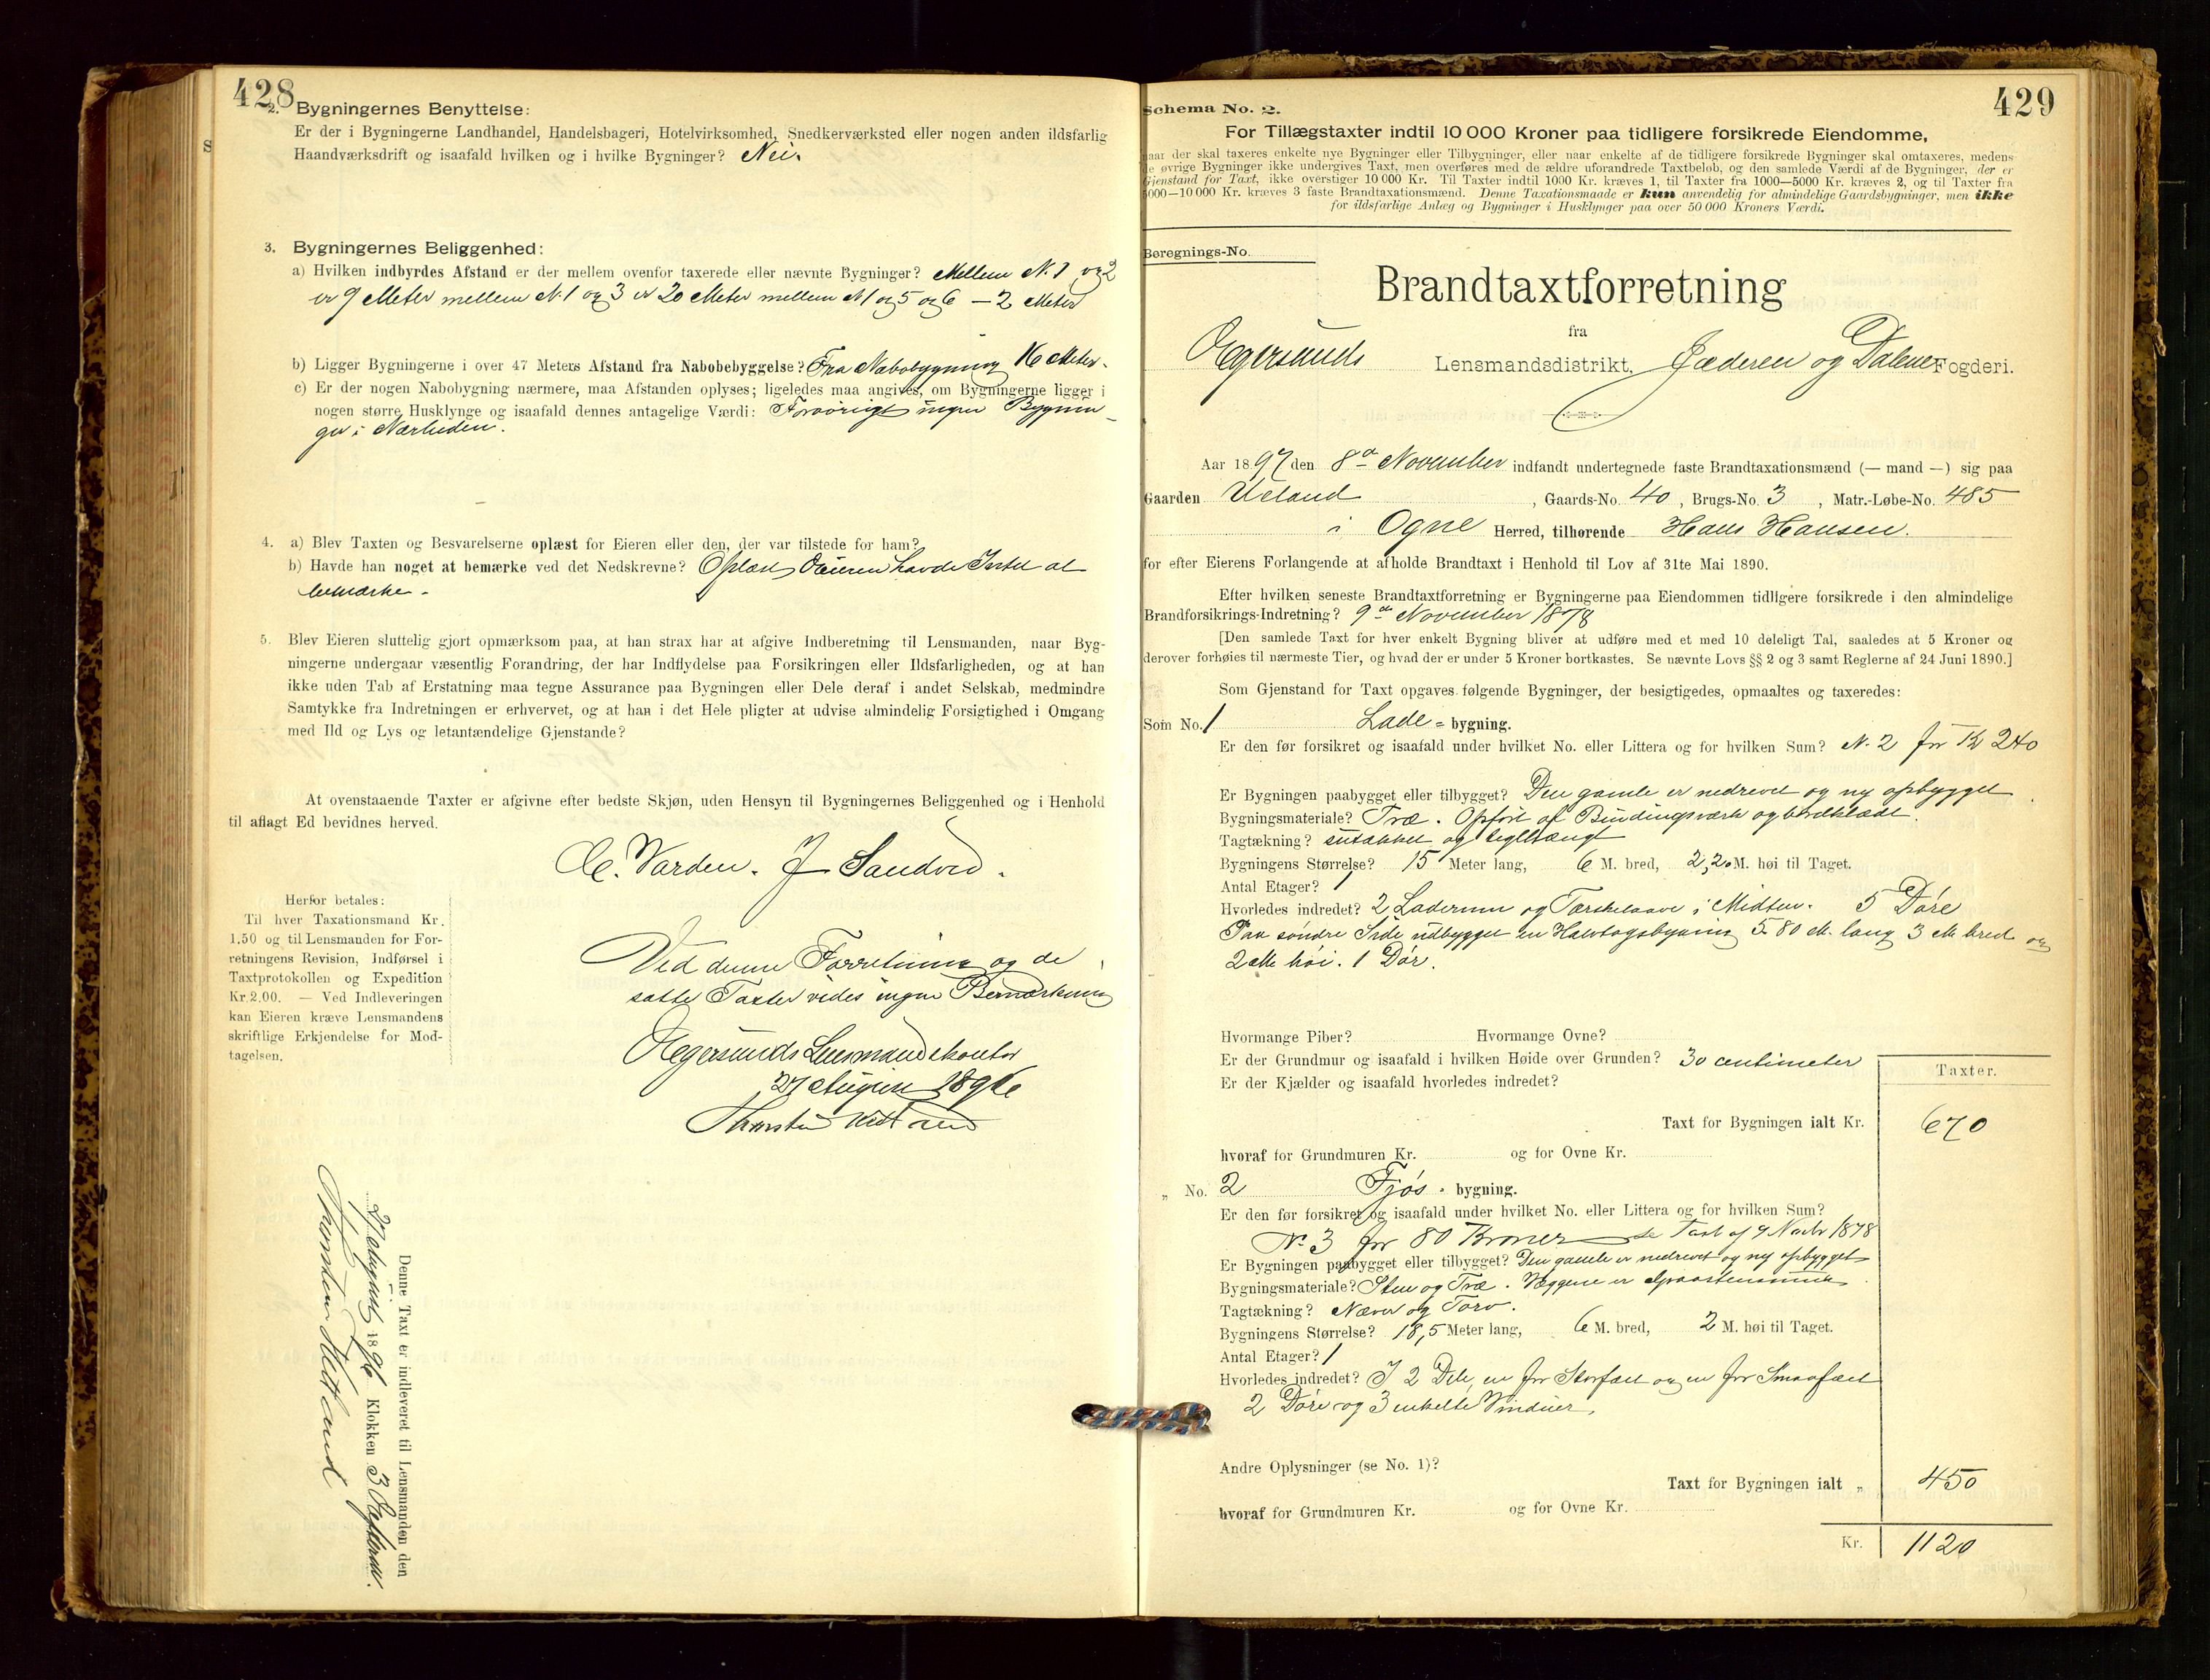 428
2. Bygningernes Benyttelse:
Er der i Bygningerne Landhandel, Handelsbageri, Hotelvirksomhed, Snedkerværksted eller nogen anden ildsfarlig
Haandværksdrift og isaafald hvilken og i hvilke Bygninger? Nei.
3. Bygningernes Beliggenhed:
a) Hvilken indbyrdes Afstand er der mellem ovenfor taxerede eller nævnte Bygninger? Mellem N. 1 og 2
er 9 Meter mellem N. 1 og 3 er 20 Meter mellem N 1 og 5 og 6 – 2 Meter
b) Ligger Bygningerne i over 47 Meters Afstand fra Nabobebyggelse? Fra Nabobygning 16 Meter.
c) Er der nogen Nabobygning nærmere, maa Afstanden oplyses; ligeledes maa angives, om Bygningerne ligger i
nogen større Husklynge og isaafald dennes antagelige Værdi: Forøvrigt ingen Bygnin-
ger i Nærheden.
4. a) Blev Taxten og Besvarelserne oplæst for Eieren eller den, der var tilstede for ham?
b) Havde han noget at bemærke ved det Nedskrevne? Oplæst Eieren havde Intet at
bemærke.
5. Blev Eieren sluttelig gjort opmærksom paa, at han strax har at afgive Indberetning til Lensmanden, naar Byg-
ningerne undergaar væsentlig Forandring, der har Indflydelse paa Forsikringen eller Ildsfarligheden, og at han
ikke uden Tab af Erstatning maa tegne Assurance paa Bygningen eller Dele deraf i andet Selskab, medmindre
Samtykke fra Indretningen er erhvervet, og at han i det Hele pligter at udvise almindelig Forsigtighed i Omgang
med Ild og Lys og letantændelige Gjenstande?
At ovenstaaende Taxter er afgivne efter bedste Skjøn, uden Hensyn til Bygningernes Beliggenhed og i Henhold
til aflagt Ed bevidnes herved.
C. Varden. J Sandved.
Herfor betales:
Til hver Taxationsmand Kr.
1.50 og til Lensmanden for For-
retningens Revision, Indførsel i
Taxtprotokollen og Expedition
Kr. 2.00. — Ved Indleveringen
kan Eieren kræve Lensmandens
skriftlige Erkjendelse for Mod-
tagelsen.
Ved denne Forretning og de
satte Taxter vides ingen Bemærkning
Egersunds Lensmandskontor
27 August 1896
Thorsten
Denne Taxt er indleveret til Lensmanden den
27 August 1896 Klokken 3 Efterm.
Thorsten
429
Schema No. 2.
For Tillægstaxter indtil 10 000 Kroner paa tidligere forsikrede Eiendomme,
naar der skal taxeres enkelte nye Bygninger eller Tilbygninger, eller naar enkelte af de tidligere forsikrede Bygninger skal omtaxeres, medens
de øvrige Bygninger ikke undergives Taxt, men overføres med de ældre uforandrede Taxtbeløb, og den samlede Værdi af de Bygninger, der er
Gjenstand for Taxt, ikke overstiger 10 000 Kr. Til Taxter indtil 1000 Kr. kræves 1, til Taxter fra 1000—5000 Kr. kræves 2, og til Taxter fra
5000—10 000 Kr. kræves 3 faste Brandtaxationsmænd. Denne Taxationsmaade er kun anvendelig for almindelige Gaardsbygninger, men ikke
for ildsfarlige Anlæg og Bygninger i Husklynger paa over 50 000 Kroners Værdi.
Beregnings-No.
Brandtaxtforretning
fra
Egersunds Lensmandsdistrikt, Jæderen og Dalene Fogderi.
Aar 1897 den 8de November indfandt undertegnede faste Brandtaxationsmænd (— mand —) sig paa
Gaarden Ueland, Gaards-No. 40, Brugs-No. 3, Matr.-Løbe-No. 485
i Ogne Herred, tilhørende Hans Hansen.
for efter Eierens Forlangende at afholde Brandtaxt i Henhold til Lov af 31te Mai 1890.
Efter hvilken seneste Brandtaxtforretning er Bygningerne paa Eiendommen tidligere forsikrede i den almindelige
Brandforsikrings-Indretning? 9de November 1878
[Den samlede Taxt for hver enkelt Bygning bliver at udføre med et med 10 deleligt Tal, saaledes at 5 Kroner og
derover forhøies til nærmeste Tier, og hvad der er under 5 Kroner bortkastes. Se nævnte Lovs §§ 2 og 3 samt Reglerne af 24 Juni 1890.]
Som Gjenstand for Taxt opgaves følgende Bygninger, der besigtigedes, opmaaltes og taxeredes:
Som No. 1 Lade- bygning.
Er den før forsikret og isaafald under hvilket No. eller Littera og for hvilken Sum? N. 2 for K 240
Er Bygningen paabygget eller tilbygget? Den gamle er nedrevet og ny opbygget
Bygningsmateriale? Træ. Opført af Bindingsværk og bordklædt.
Tagtækning? sutækket og teglhængt
Bygningens Størrelse? 15 Meter lang, 6 M. bred, 2,20 M. høi til Taget.
Antal Etager? 1
Hvorledes indredet? 2 Laderum og Tærskelaave i Midten. 5 Døre
Paa søndre Side udbygget en Halvtagsbygning 5.80 M. lang 3 M bred og
2 M høi. 1 Dør.
Hvormange Piber? Hvormange Ovne?
Er der Grundmur og isaafald i hvilken Høide over Grunden? 30 centimeter
Er der Kjælder og isaafald hvorledes indredet?
Taxter.
Taxt for Bygningen ialt Kr. 670
hvoraf for Grundmuren Kr. og for Ovne Kr.
„ No. 2 Fjøs- bygning.
Er den før forsikret og isaafald under hvilket No. eller Littera og for hvilken Sum?
No 3 for 80 Kroner se Taxt af 9 Novbr 1878
Er Bygningen paabygget eller tilbygget? Den gamle er nedrevet og ny opbygget
Bygningsmateriale? Sten og Træ. Væggene er Graastensmur
Tagtækning? Næver og Torv.
Bygningens Størrelse? 18,5 Meter lang, 6 M. bred, 2 M. høi til Taget.
Antal Etager? 1
Hvorledes indredet? I 2 Dele, en for Storfæet og en for Smaafæet
2 Døre og 3 enkelte Vinduer.
Andre Oplysninger (se No. 1)?
Taxt for Bygningen ialt „ 450
hvoraf for Grundmuren Kr. og for Ovne Kr.
Kr. 1120